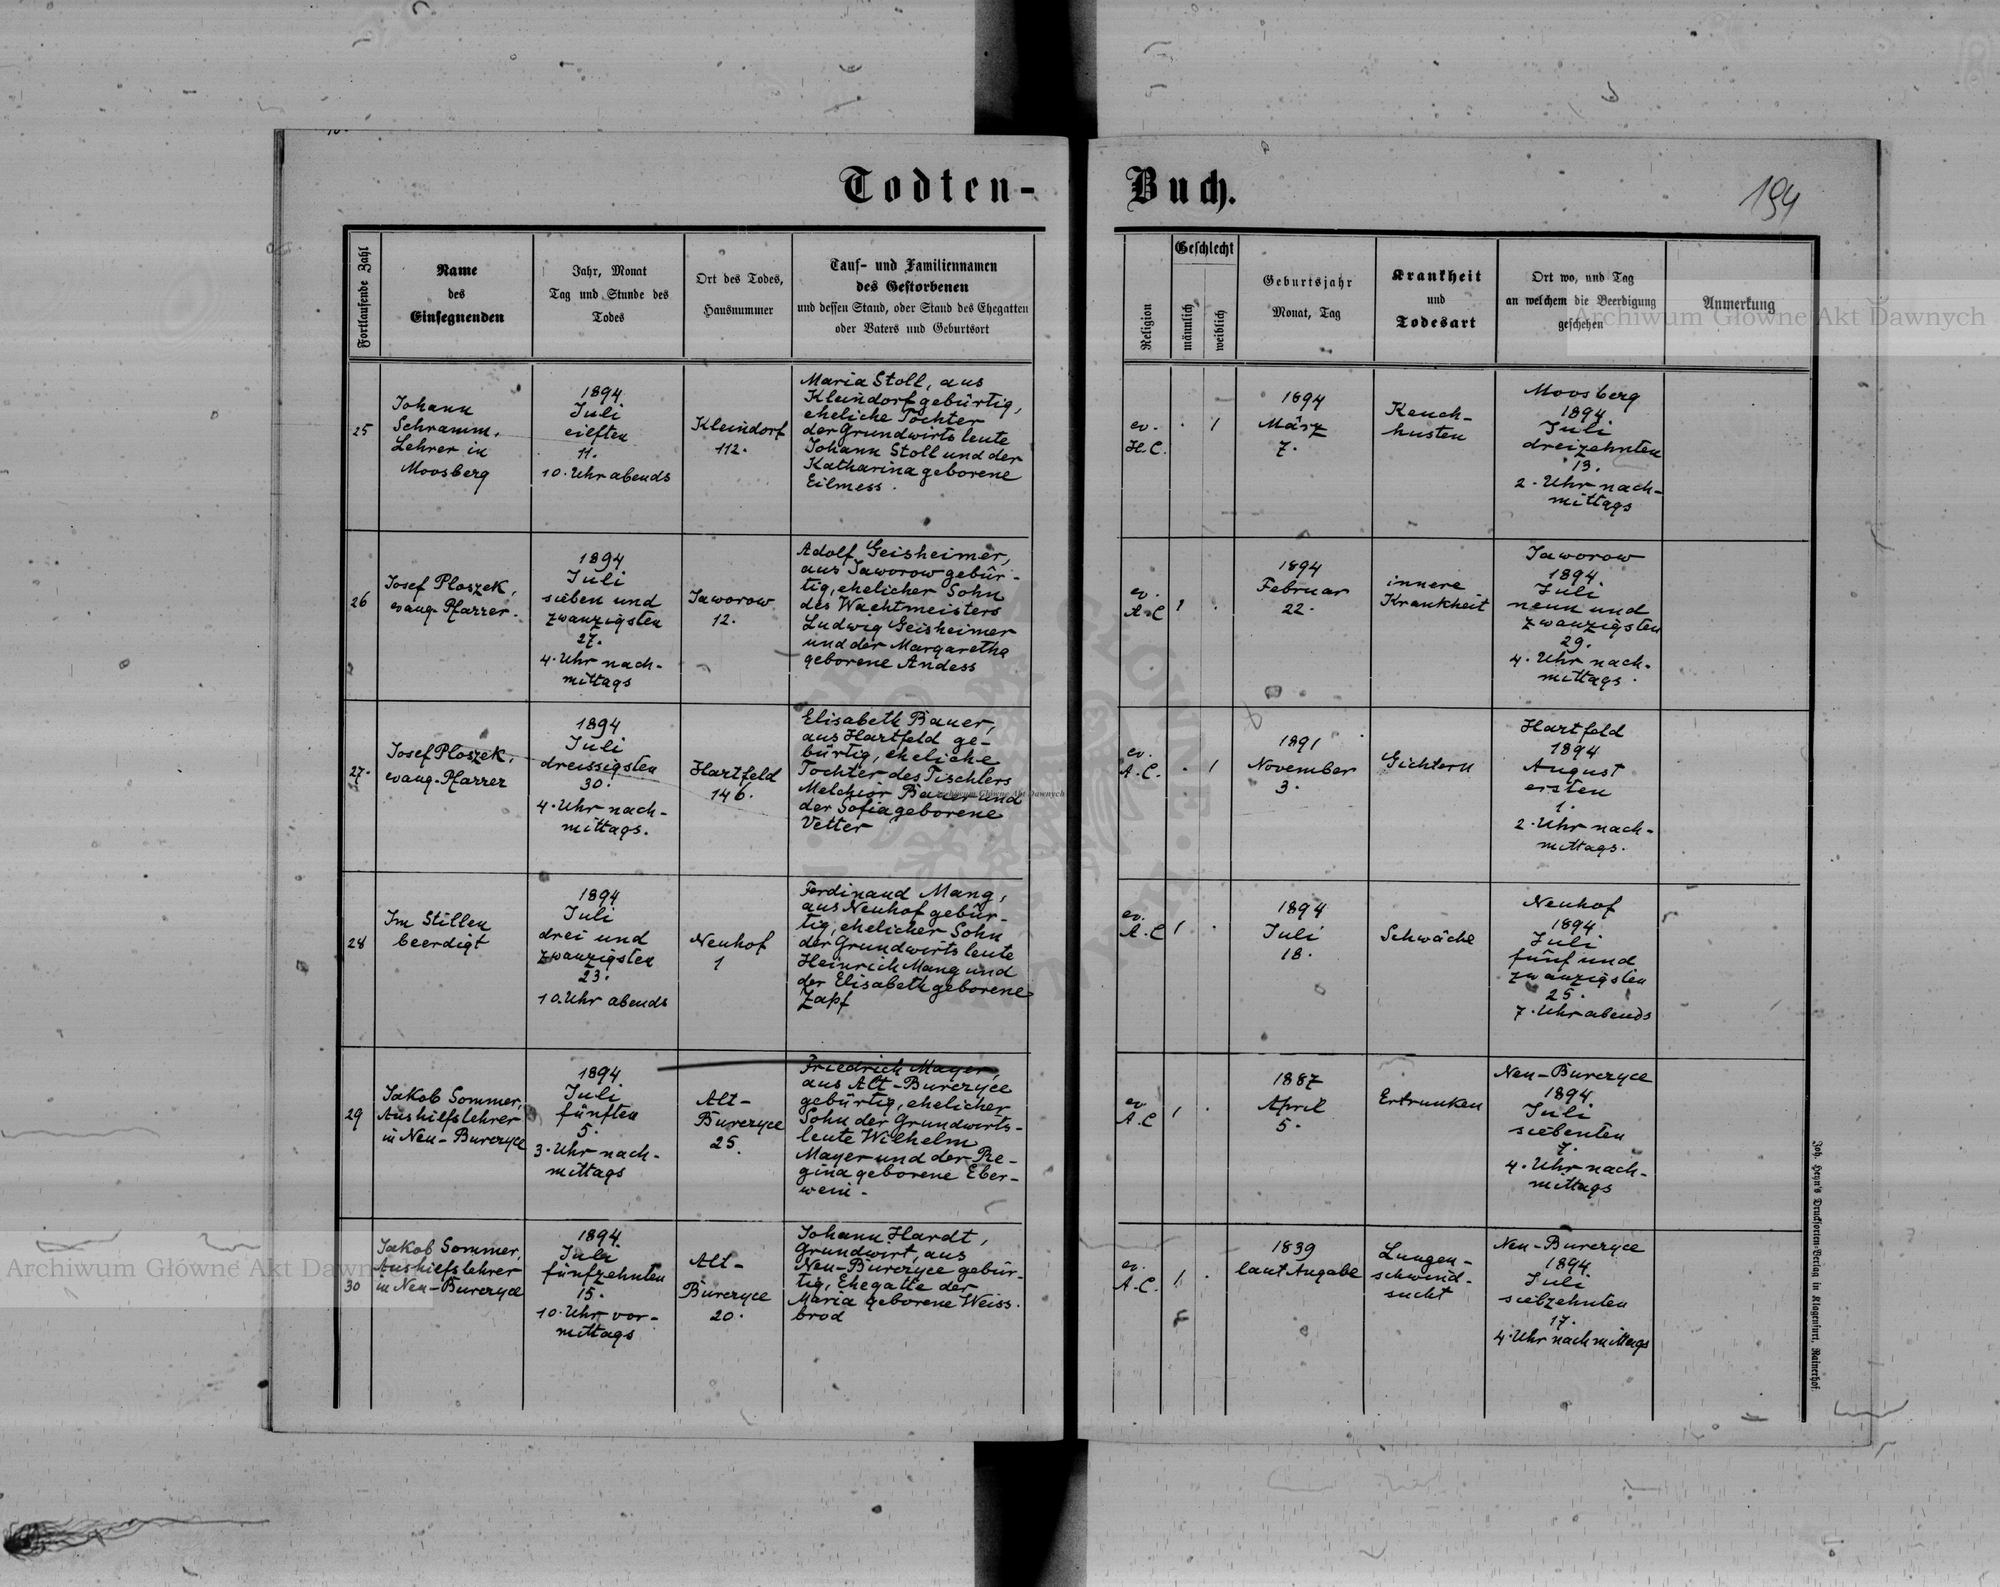 Todten-Buch.
194
Fortlaufende Zahl
Name
des
Einsegnenden
Jahr, Monat
Tag und Stunde des
Todes
Ort des Todes,
Hausnummer
Tauf- und Familiennamen
des Gestorbenen
und dessen Stand, oder Stand des Ehegatten
oder Vaters und Geburtsort
Religion
Geschlecht
männlich
weiblich
Geburtsjahr
Monat, Tag
Krankheit
und
Todesart
Ort wo, und Tag
an welchem die Beerdigung
geschehen
Anmerkung
Archiwum Główne Akt Dawnych
25
Johann
Schramm,
Lehrer in
Moosberg
1894
Juli
eilften
11.
10. Uhr abends
Kleindorf
112.
Maria Stoll, aus
Kleindorf gebürtig,
eheliche Tochter
der Grundwirtsleute
Johann Stoll und der
Katharina geborene
Eilmess.
ev.
H.C.
. 1
1894
März
7.
Keuch-
husten
Moosberg
1894
Juli
dreizehnten
13.
2. Uhr nach-
mittags
26
Josef Ploszek,
evang. Pfarrer.
1894
Juli
sieben und
zwanzigsten
27.
4. Uhr nach-
mittags
Jaworow
12.
Adolf Geisheimer,
aus Jaworow gebür-
tig, ehelicher Sohn
des Wachtmeisters
Ludwig Geisheimer
und der Margaretha
geborene Andess
ev.
A.C
1 .
1894
Februar
22.
innere
Krankheit
Jaworow
1894.
Juli
neun und
zwanzigsten
29.
4. Uhr nach-
mittags.
27.
Josef Ploszek,
evang. Pfarrer
1894
Juli
dreissigsten
30.
4. Uhr nach-
mittags.
Hartfeld
146.
Elisabeth Bauer,
aus Hartfeld ge-
bürtig, eheliche
Tochter des Tischlers
Melchior Bauer und
der Sofia geborene
Vetter
Archiwum Główne Akt Dawnych
ev.
A.C.
. 1
1891
November
3.
Gichtern
Hartfeld
1894
August
ersten
1.
2. Uhr nach-
mittags.
28
Im Stillen
beerdigt
1894
Juli
drei und
zwanzigsten
23.
10. Uhr abends
Neuhof
1
Ferdinand Mang,
aus Neuhof gebür-
tig, ehelicher Sohn
der Grundwirtsleute
Heinrich Mang und
der Elisabeth geborene
Zapf
ev.
A.C
1 .
1894
Juli
18.
Schwäche
Neuhof
1894
Juli
fünf und
zwanzigsten
25.
7. Uhr abends
29
Jakob Sommer,
Aushilfslehrer
in Neu-Burczyce
1894
Juli
fünften
5.
3. Uhr nach-
mittags
Alt-
Burczyce
25.
Friedrich Mayer,
aus Alt-Burczyce
gebürtig, ehelicher
Sohn der Grundwirts-
leute Wilhelm
Mayer und der Re-
gina geborene Eber-
wein.
ev.
A.C
1 .
1887
April
5.
Ertrunken
Neu-Burczyce
1894
Juli
siebenten
7.
4. Uhr nach-
mittags
30
Jakob Sommer,
Aushilfslehrer
in Neu-Burczyce
1894
Juli
fünfzehnten
15.
10. Uhr vor-
mittags
Alt-
Burczyce
20.
Johann Hardt,
Grundwirt, aus
Neu-Burczyce gebür-
tig, Ehegatte der
Maria geborene Weiss-
brod
ev.
A.C.
1 .
1839
laut Angabe
Lungen-
schwind-
sucht
Neu-Burczyce
1894
Juli
siebzehnten
17.
4. Uhr nachmittags
Joh. Heyn's Drucksorten-Verlag in Klagenfurt, Rainerhof.
Archiwum Główne Akt Dawnych